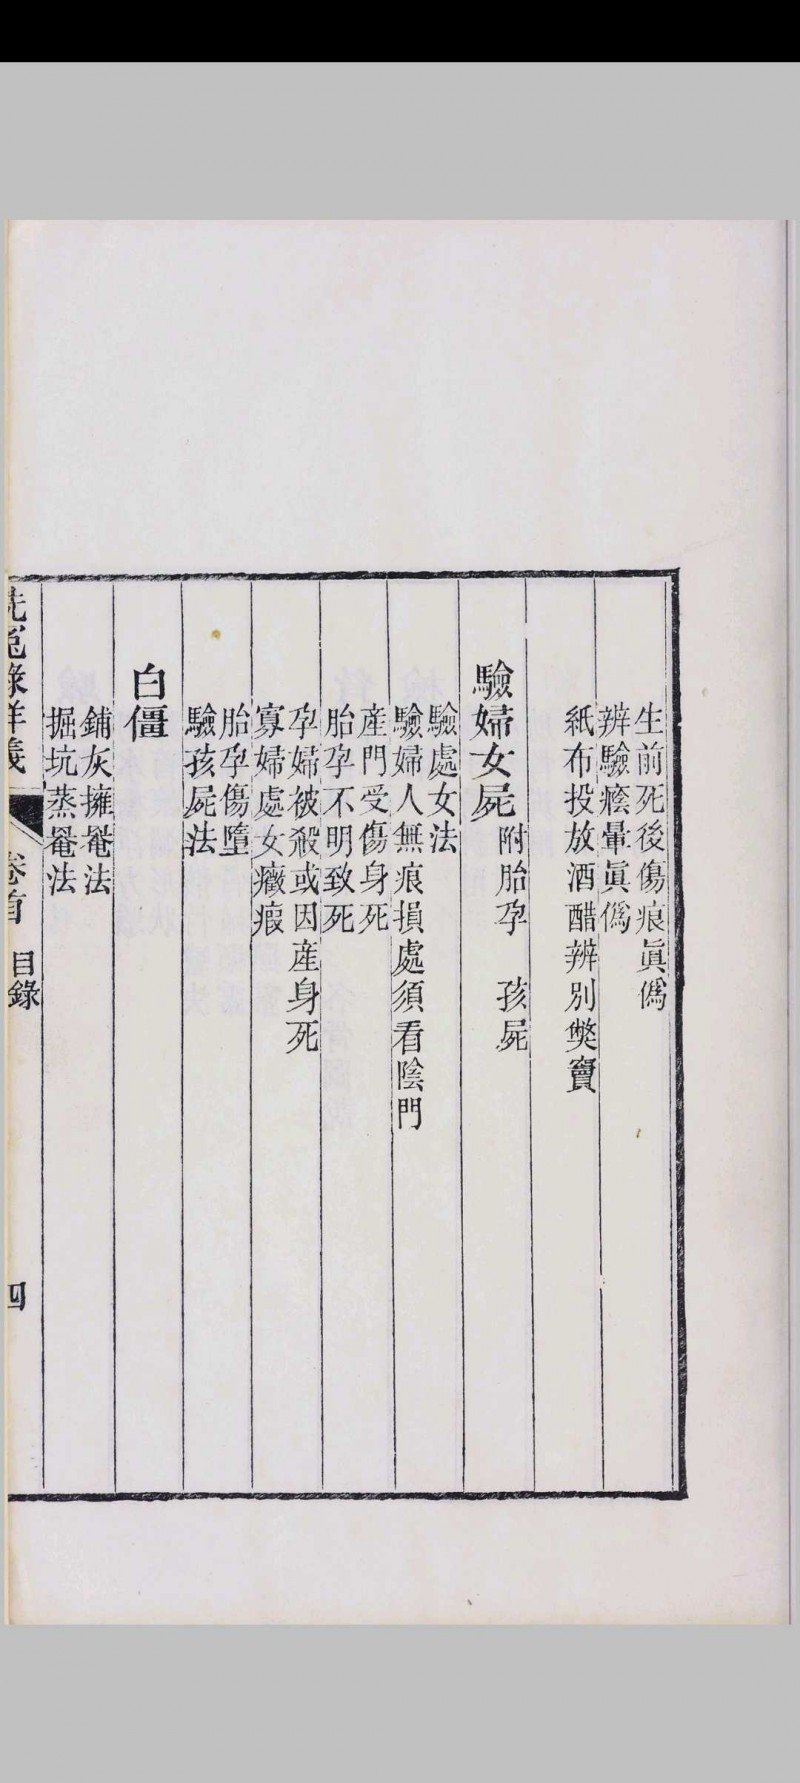 生前死後傷痕眞僞
辨驗癊暈眞僞
紙布投放酒醋辨別獘竇
驗婦女屍附胎孕　孩屍
驗處女法
驗婦人無痕損處須看陰門
産門受傷身死
胎孕不明致死
孕婦被殺或因産身死
寡婦處女癥瘕
胎孕傷墮
驗孩屍法
白僵
鋪灰擁罨法
掘坑蒸罨法
洗冤錄詳義　卷首　目錄　四